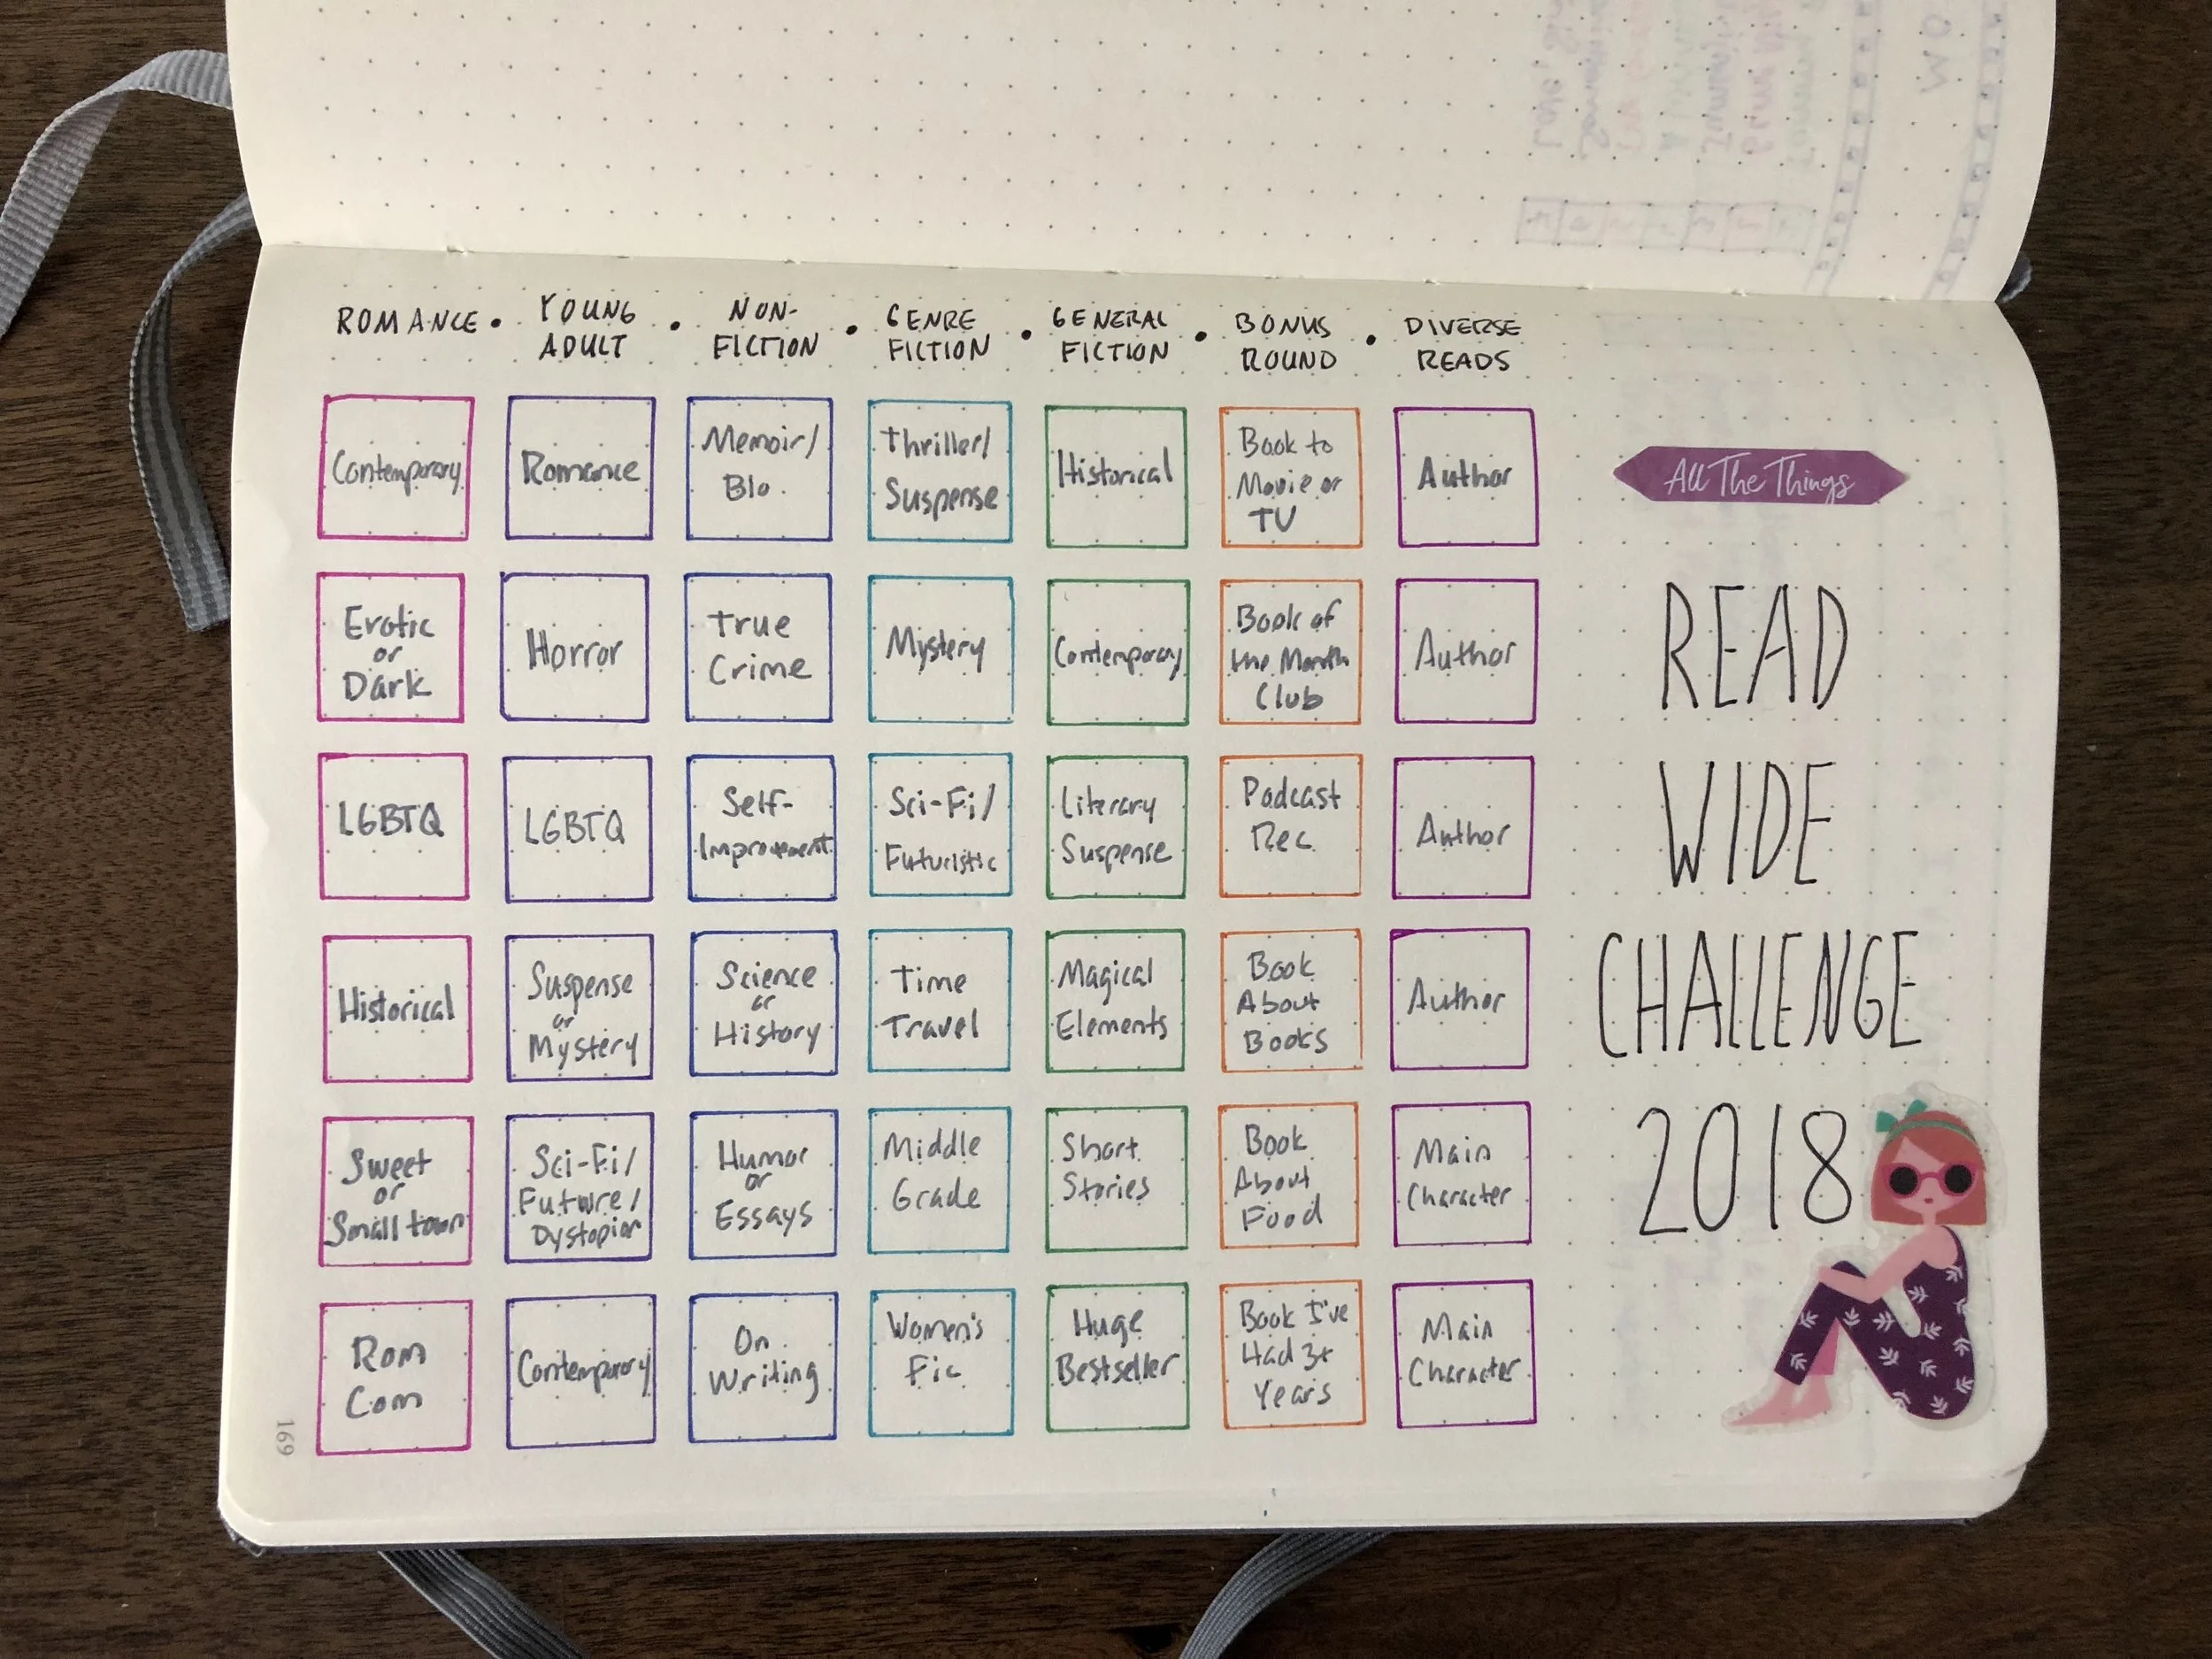 ROMANCE • YOUNG ADULT • NON-FICTION • GENRE FICTION • GENERAL FICTION • BONUS ROUND • DIVERSE READS
Contemporary
Romance
Memoir/
Bio.
Thriller/
Suspense
Historical
Book to
Movie or
TV
Author
Erotic
or
Dark
Horror
True
Crime
Mystery
Contemporary
Book of
the Month
Club
Author
LGBTQ
LGBTQ
Self-
Improvement
Sci-Fi/
Futuristic
Literary
Suspense
Podcast
Rec
Author
Historical
Suspense
or
Mystery
Science
or
History
Time
Travel
Magical
Elements
Book
About
Books
Author
Sweet
or
Small town
Sci-Fi/
Future/
Dystopian
Humor
or
Essays
Middle
Grade
Short
Stories
Book
About
Food
Main
Character
Rom
Com
Contemporary
On
Writing
Women's
Fic
Huge
Bestseller
Book I've
Had 3+
Years
Main
Character
All The Things
READ
WIDE
CHALLENGE
2018
169